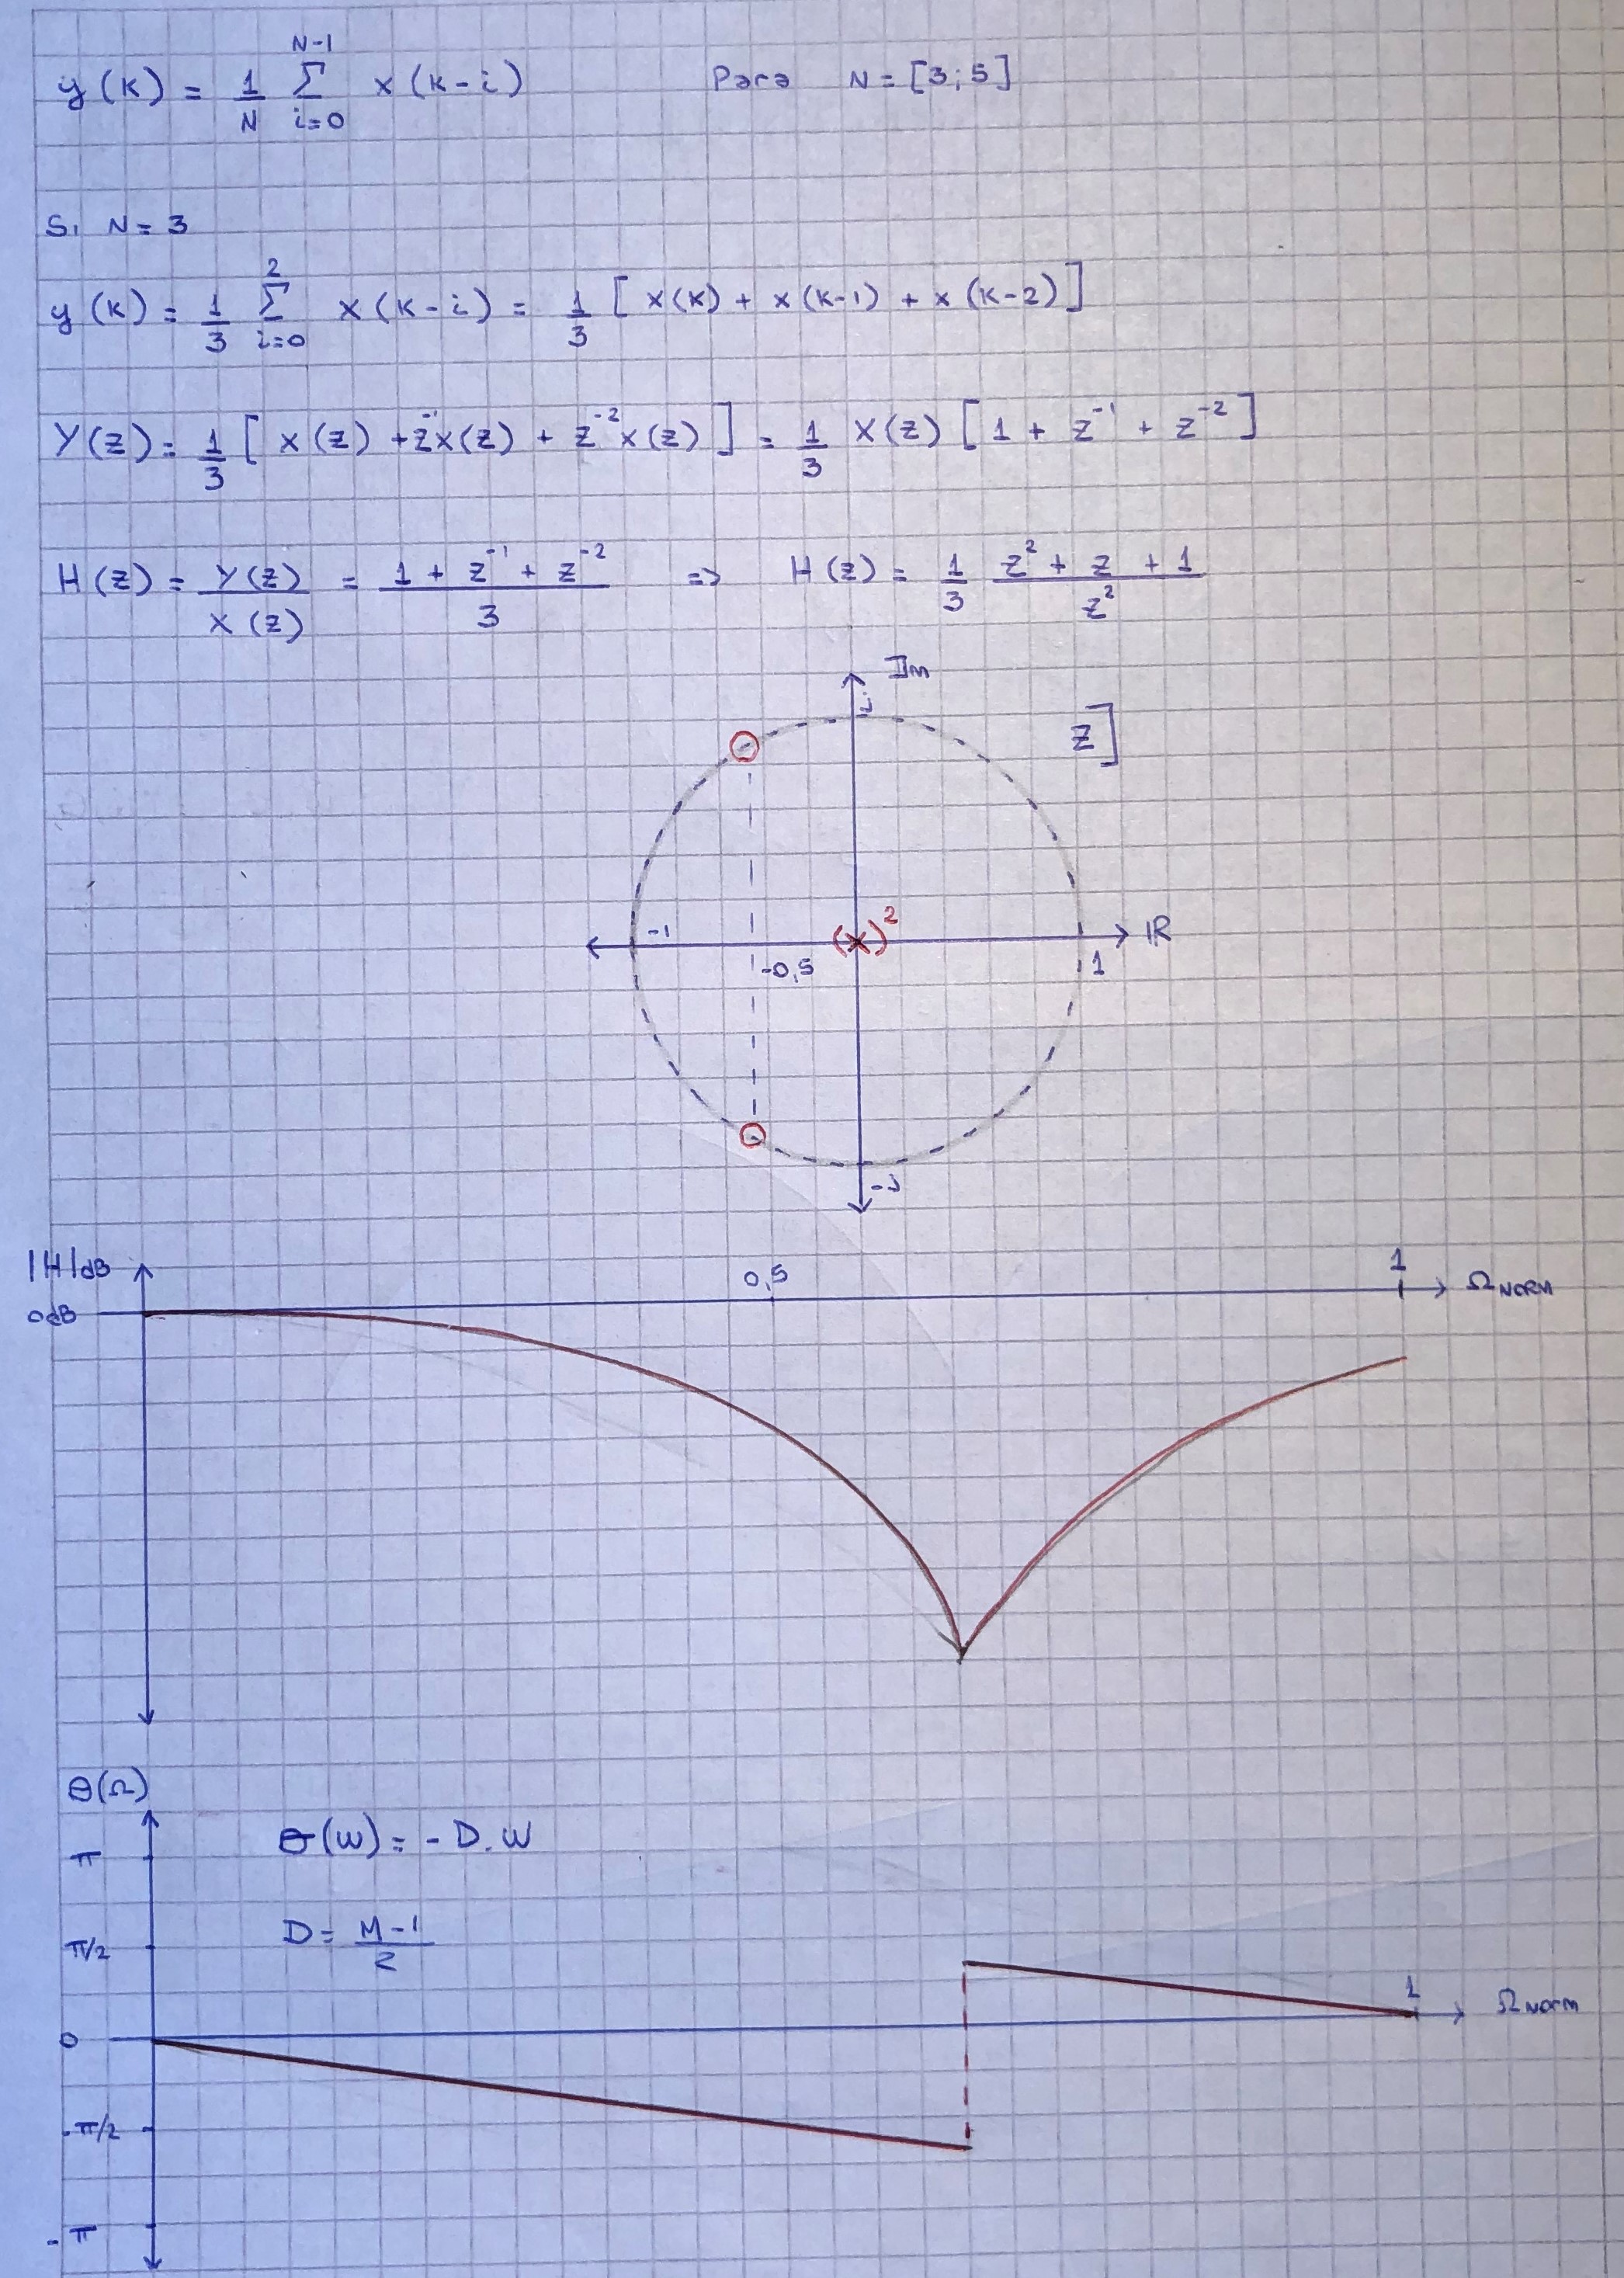 y(k) = 1/N Σ_{i=0}^{N-1} x(k-i) Para N = [3;5]
Si N = 3
y(k) = 1/3 Σ_{i=0}^{2} x(k-i) = 1/3 [x(k) + x(k-1) + x(k-2)]
Y(z) = 1/3 [x(z) + z^{-1}x(z) + z^{-2}x(z)] = 1/3 X(z) [1 + z^{-1} + z^{-2}]
H(z) = Y(z)/X(z) = (1 + z^{-1} + z^{-2})/3 => H(z) = 1/3 (z^2 + z + 1)/z^2
Im
j
z]
(x)^2
-1
IR
-0,5
1
-j
|H|dB
0,5
1
Ω NORM
0dB
θ(Ω)
θ(w) = -D.w
π
D = (M-1)/2
π/2
1
Ω Norm
0
-π/2
-π